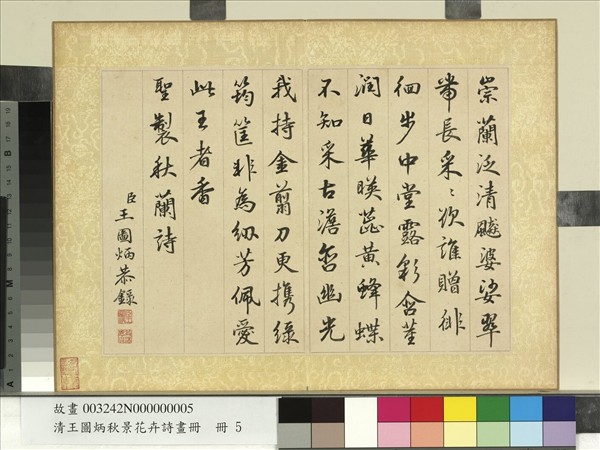 崇蘭泛清飈婆娑翠
帶長采〻欲誰贈徘
徊步中堂露彩含莖
潤日華暎蕊黃蜂蝶
不知采古澹含幽光
我持金剪刀更攜綠
筠筐非為紉芳佩愛
此王者香
聖製秋蘭詩
臣王圖炳恭錄
故畫 003242N000000005
清王圖炳秋景花卉詩畫冊 冊 5